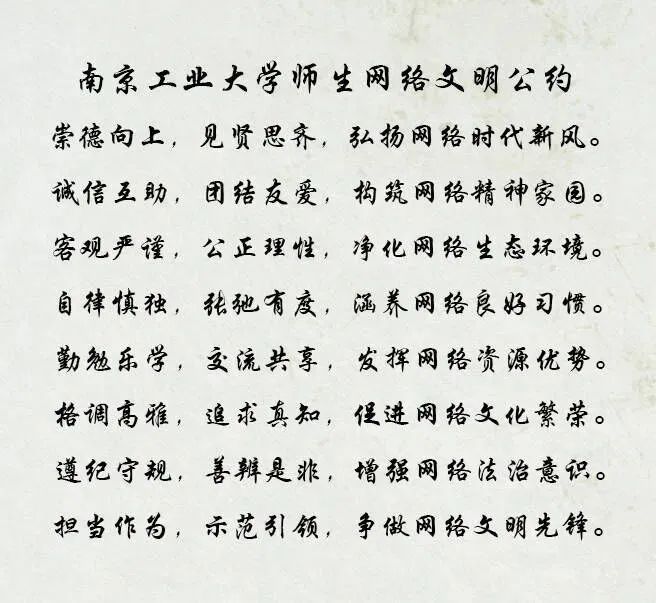 南京工业大学师生网络文明公约
崇德向上，见贤思齐，弘扬网络时代新风。
诚信互助，团结友爱，构筑网络精神家园。
客观严谨，公正理性，净化网络生态环境。
自律慎独，张弛有度，涵养网络良好习惯。
勤勉乐学，交流共享，发挥网络资源优势。
格调高雅，追求真知，促进网络文化繁荣。
遵纪守规，善辨是非，增强网络法治意识。
担当作为，示范引领，争做网络文明先锋。